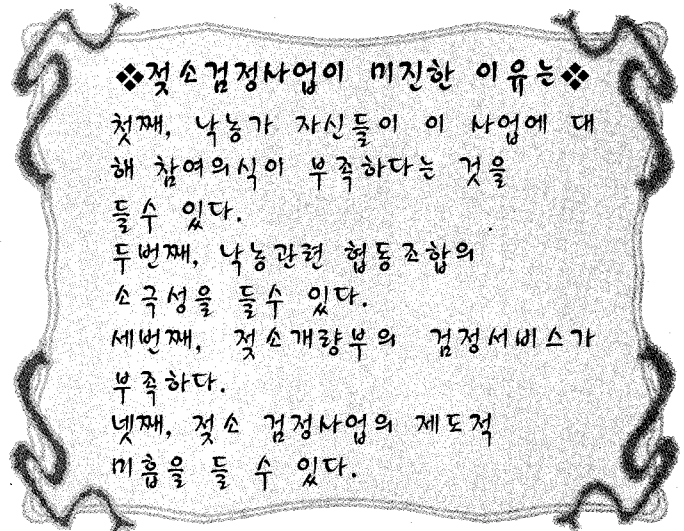 ❖젖소검정사업이 미진한 이유는❖
첫째, 낙농가 자신들이 이 사업에 대
해 참여의식이 부족하다는 것을
들수 있다.
두번째, 낙농관련 협동조합의
소극성을 들수 있다.
세번째, 젖소개량부의 검정서비스가
부족하다.
넷째, 젖소 검정사업의 제도적
미흡을 들 수 있다.